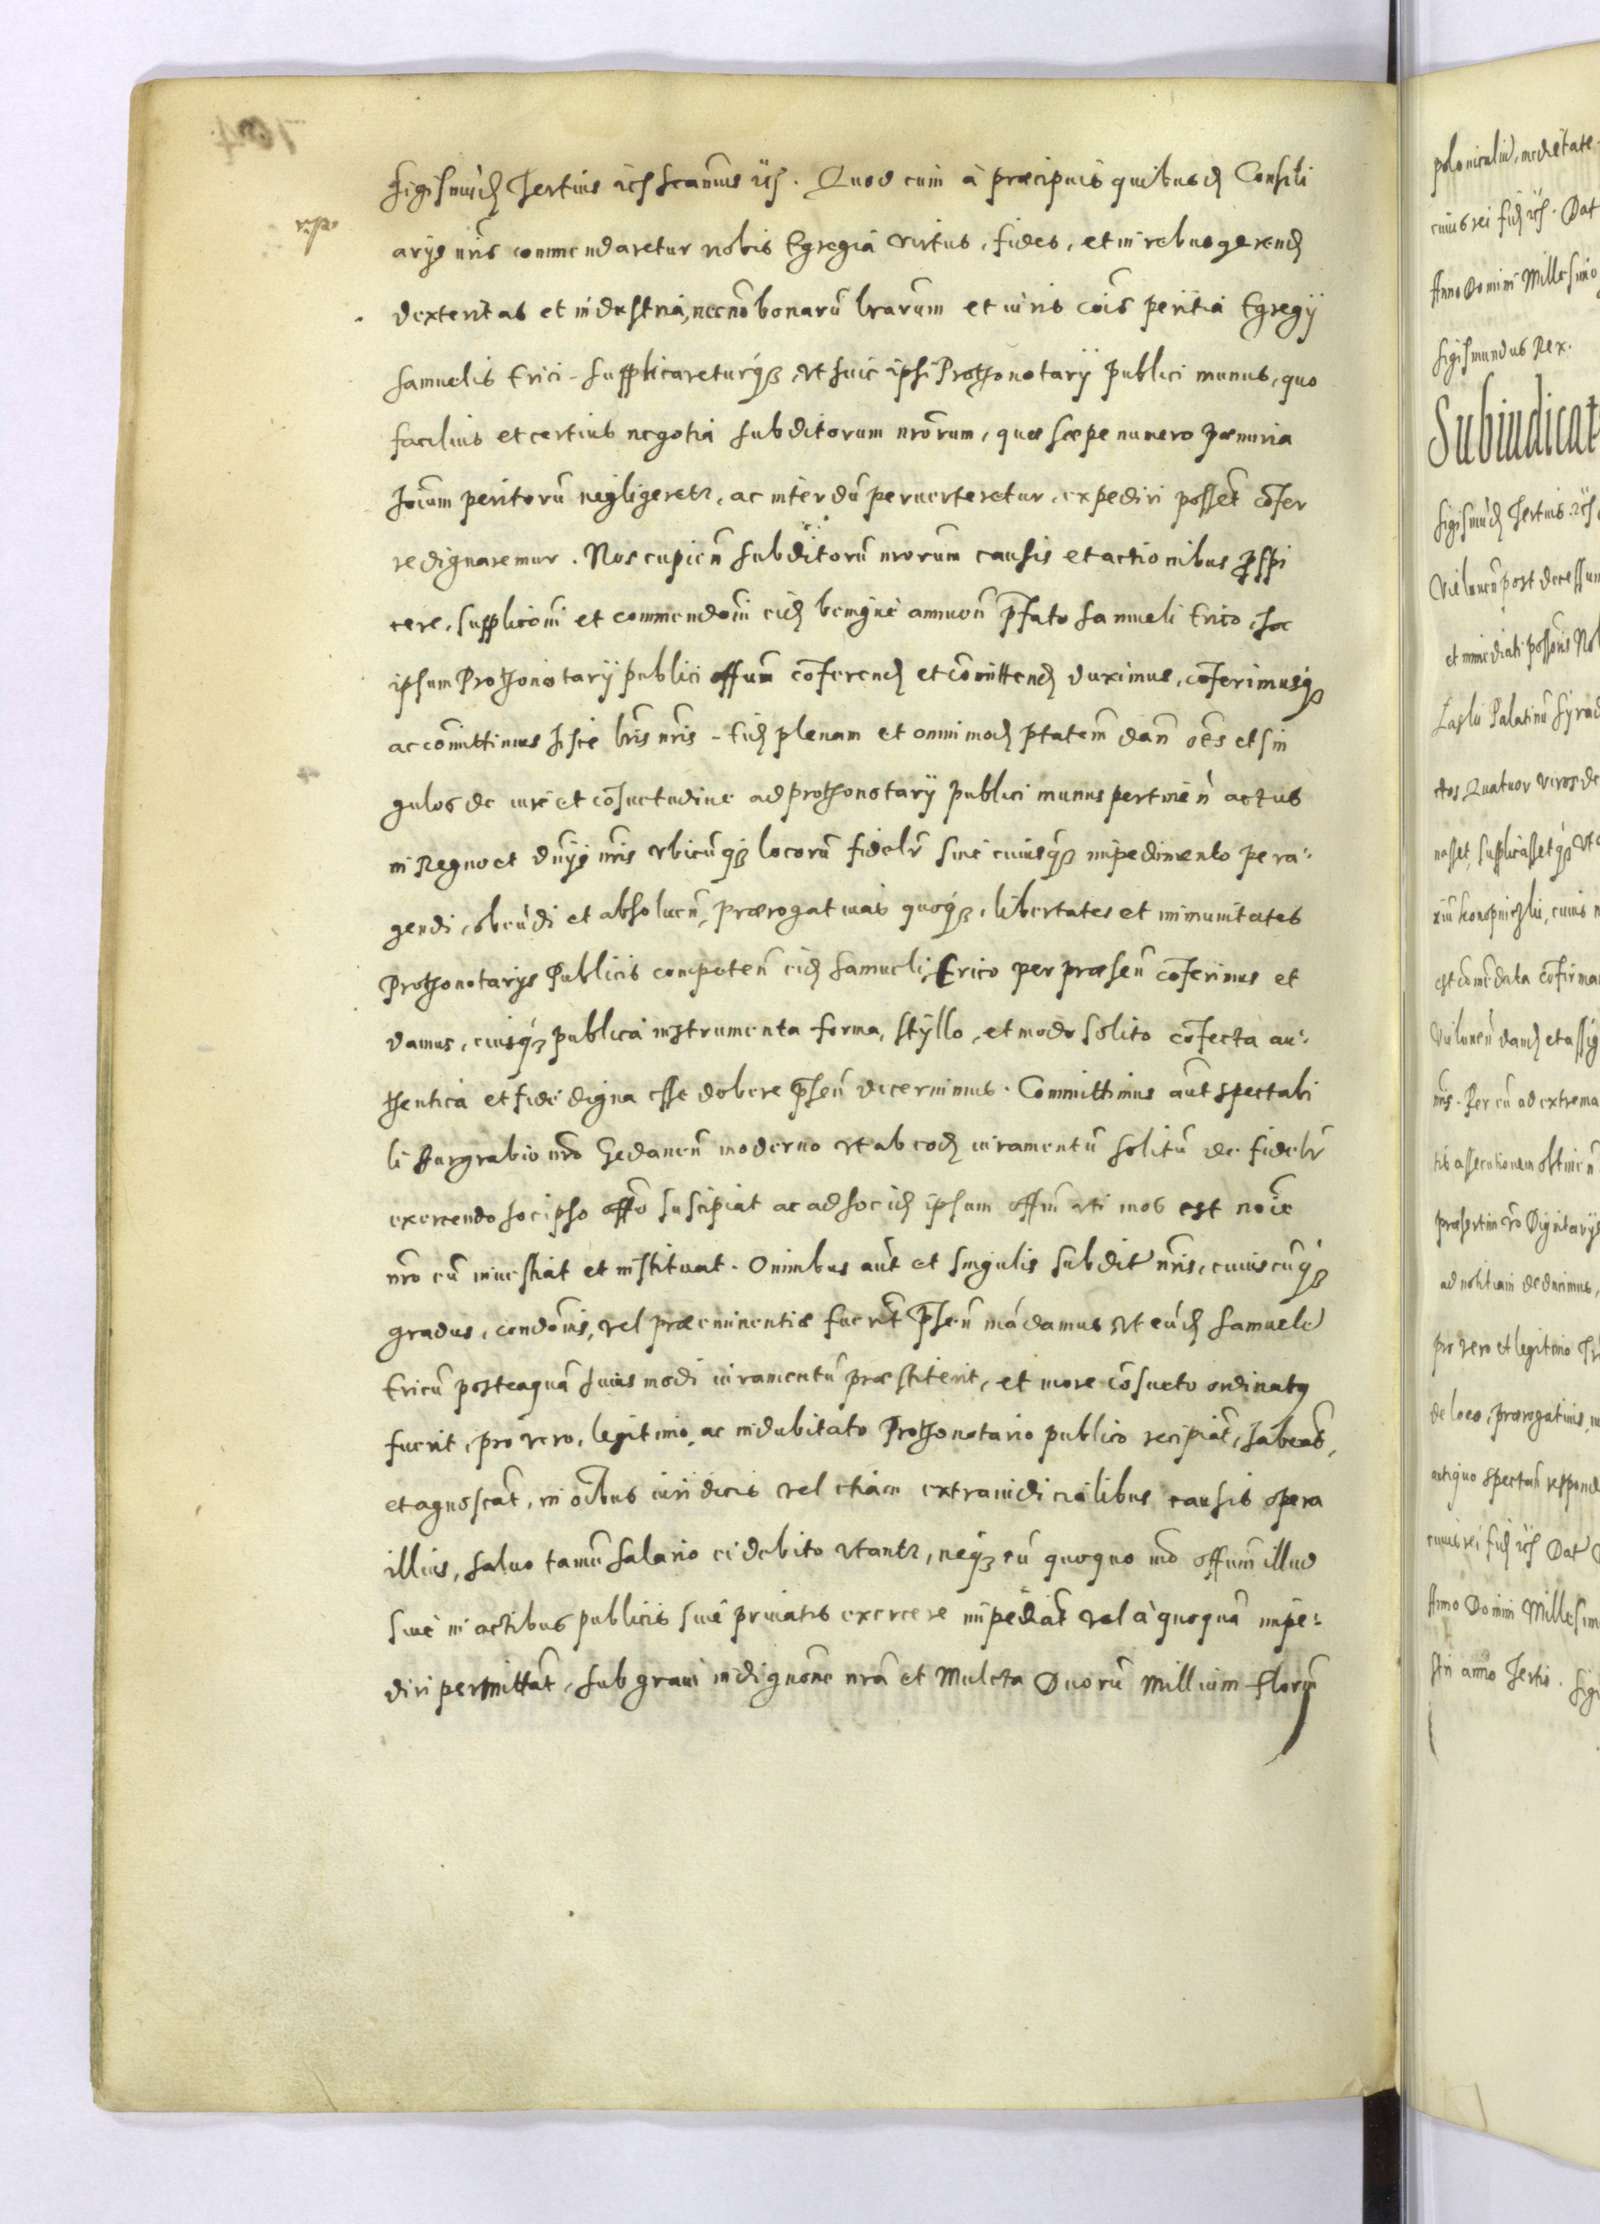 Sigismūd Tertius etc Scanus etc. Quod cum à præcipuis quibusd Consili
arys nris commendaretur nobis Egregia virtus, fides, et in rebus gerend
dexteritas et industria, necnō bonarū lrarum et iuris cōis peritia Egregij
Samuelis Erici - supplicareturq, vt huic ipsi Prothonotarij publici munus, quo
facilius et certius negotia subditorum nrorum, quæ sæpenumero pænuria
hōium peritorū negligeretr, ac interdū peruerteretur, expediri possēt cōfer
re dignaremur. Nos cupien subditorū nrorum causis et actionibus prospi
cere, supplicōni et commendōni eid benignè annuen prfato Samueli Erico, hoc
ipsum Prothonotarij publici offum cōferend et cōmittend duximus, cōferimusq
ac cōmittimus hisce lris nris - Eid plenam et omnimod ptatem dan oēs et sin
gulos de iure et cōsuetudine ad prothonotarij publici munus pertinen actus
in Regno et dnijs nris vbicūq locorū fidelr sine cuiusq impedimento pera-
gendi, obeūdi et absoluen, prærogatiuas quoq, libertates et immunitates
Prothonotarys Publicis competen eid Samueli Erico per præsen cōferimus et
damus, eiusq publica instrumenta forma, styllo, et modo solito cōfecta au-
thentica et fide digna esse debere prsen decernimus. Committimus aūt spectabi
li Burgrabio nro Gedanen moderno vt ab eod iuramentū solitū de fidelr
exercendo hoc ipso offo suscipiat ac ad hoc id ipsum offm vti mos est noie
nro eū inuestiat et instituat. Omnibus aūt et singulis subdit nris, cuiuscūq
gradus, condōnis, vel præeminentiæ fuerīt prsen mādamus vt eūd Samuelē
Ericū posteaquā huiusmodi iuramentū præstiterit, et more cōsueto ordinatus
fuerit, pro vero, legitimo ac indubitato Prothonotario publico recipiāt, habeāt,
et agnoscāt, in oībus iuridicis vel etiam extraiudicialibus causis opera
illius, saluo tamē salario ei debito vtantr, neq eū quoquo mō offum illud
siue in actibus publicis siue priuatis exercere impediāt vel à quoquā impe-
diri permittāt, sub graui indignōne nrā et Mulcta Duorū Millium Floren
poloniculiū, medietate
cuius rei fid etc. Dat
Anno Domini Millesimo
Sigismundus Rex.
Subiudicat
Sigismūd Tertius etc
Vielunen post decessum
et immediati possoris
Palatinū Syrad
nasset, supplicassetq vt
est cōmēdata cōfirma
Vielunen dand et assig
nris. Per eū ad extrema
tis assecutionem obtinen
præsertim vero Dignitarijs
ad notitiam deducimus,
pro vero et legitimo
de loco, prærogatiuis,
antiquo spectan respond
cuius rei fid etc Dat
Anno Domini Millesimo
stri anno Tertio. Sigi